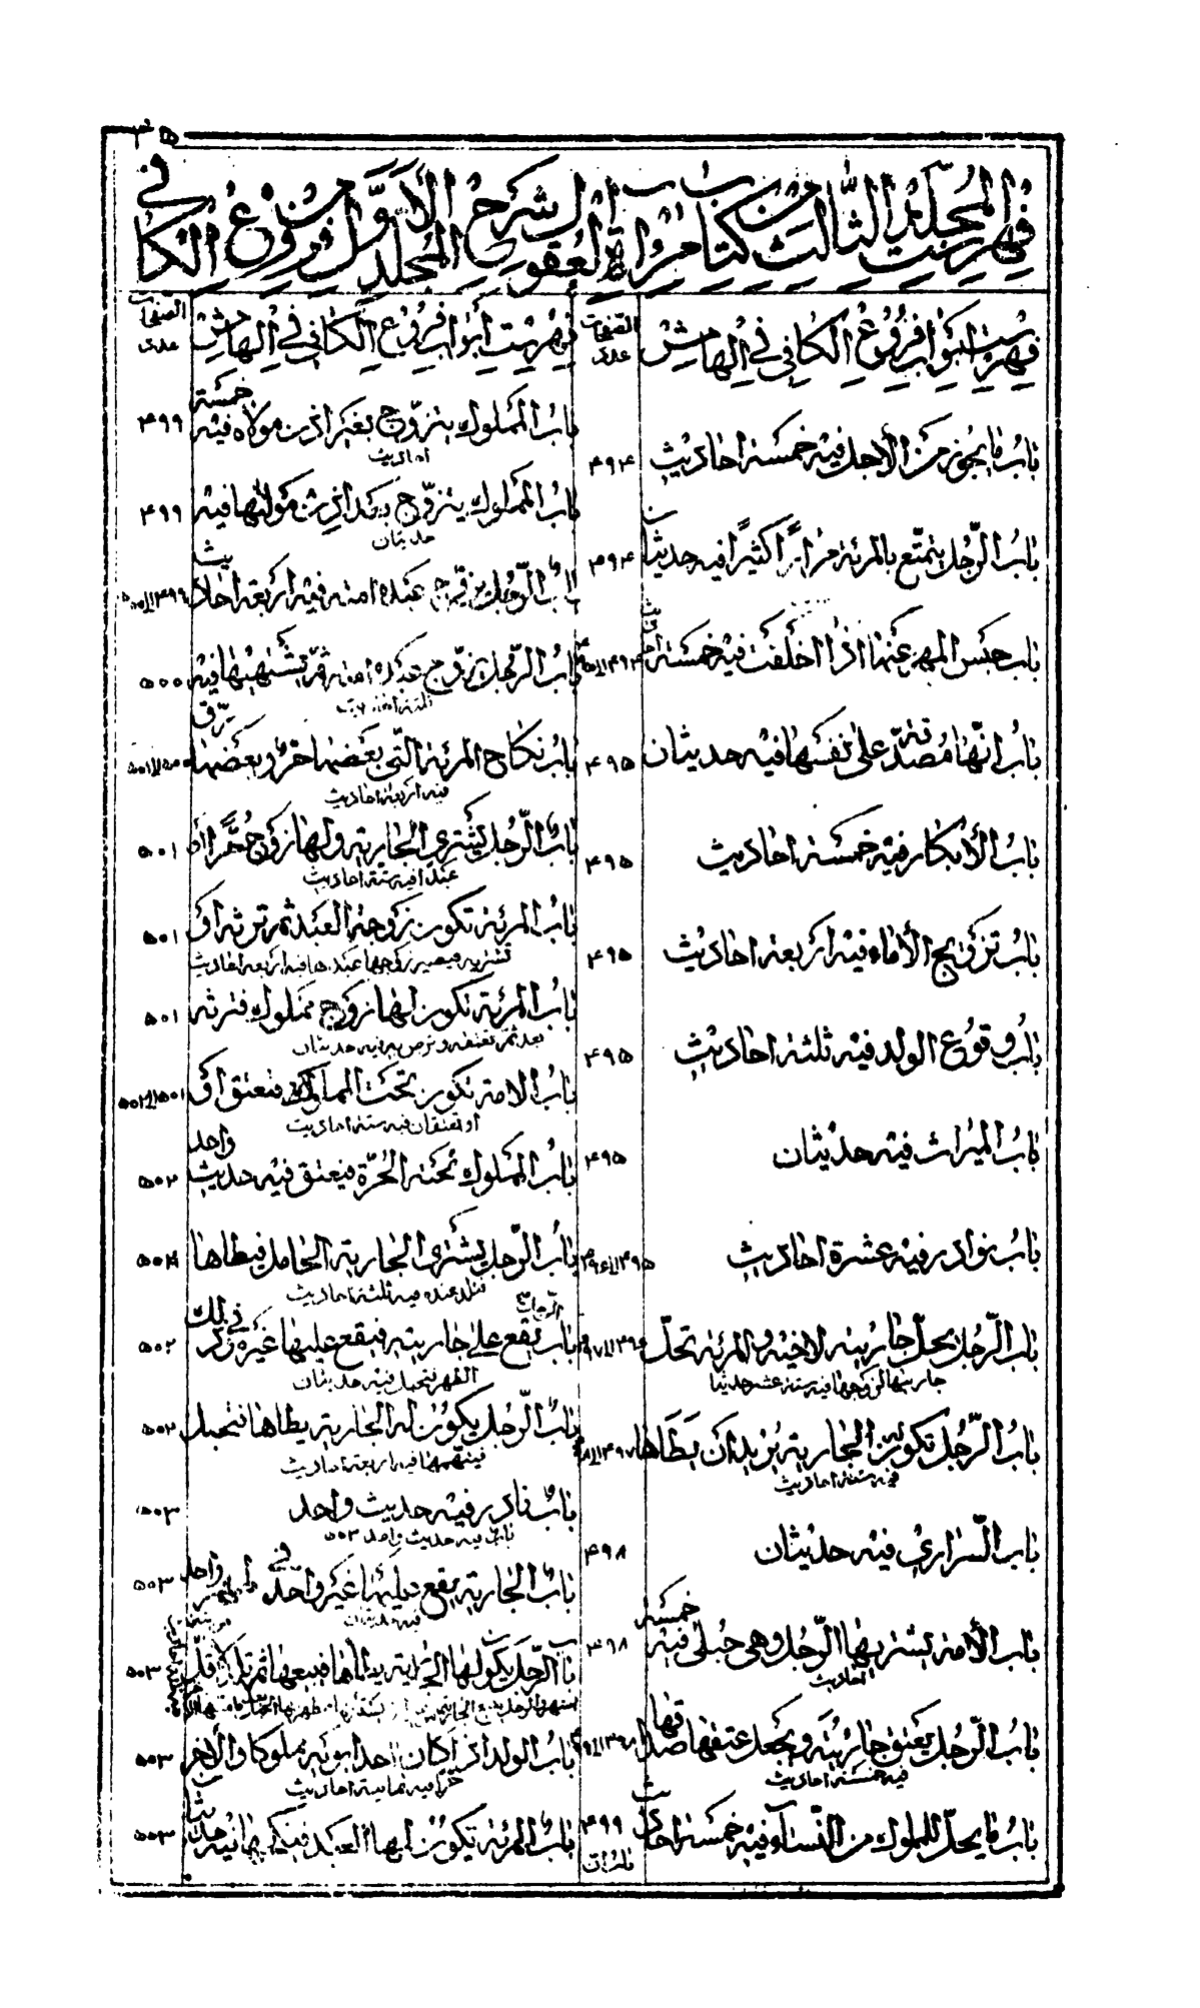 ۳۵
فهرست المجلد الثالث من كتاب مرآة العقول شرح المجلد الأول من فروع الكافي
فهرست ابواب فروع الكافي في الهامش
الصفحات
عدد
باب ما يجوز من الأجل فيه خمسة احاديث
۴۹۴
باب الرّجل يتمتّع بالمرئة مرارًا كثيرًا فيه حديثان
۴۹۴
باب حبس المهر عنها اذا اخلفت فيه خمسة احاديث
باب انّها مصدّقة على نفسها فيه حديثان
۴۹۵
باب الأبكار فيه خمسة احاديث
۴۹۵
باب تزويج الأماء فيه اربعة احاديث
۴۹۵
باب وقوع الولد فيه ثلثة احاديث
۴۹۵
باب الميراث فيه حديثان
۴۹۵
باب نوادر فيه عشرة احاديث
باب الرّجل يحلّ جاريته لاخيه والمرئة تحلّ
جاريتها لزوجها فيه ستة عشر حديثا
باب الرّجل تكون له الجارية يريد ان يطاها
فيه ستة احاديث
باب السّراري فيه حديثان
۴۹۸
باب الأمة يشتريها الرّجل وهي حبلى فيه خمسة
احاديث
۴۹۸
باب الرّجل يعتق جاريته ويجعل عتقها صداقها
فيه خمسة احاديث
باب ما يحلّ للمملوك من النّسآء فيه خمسة احاديث
۴۹۹
فهرست ابواب فروع الكافي في الهامش
الصفحات
عدد
باب المملوك يتزوّج بغير اذن مولاه فيه خمسة
احاديث
۴۹۹
باب المملوكة يتزوّج بغير اذن مولاتها فيه
حديثان
۴۹۹
باب الرّجل يزوّج عبده امته فيه اربعة احاديث
باب الرّجل يزوّج عبده امته ثمّ يشتهيها فيه
ثلثة احاديث
۵۰۰
باب نكاح المرئة التّي بعضها حرّ وبعضها رق
فيه اربعة احاديث
باب الرّجل يشتري الجارية ولها زوج حرّ او
عبد فيه ستة احاديث
۵۰۱
باب المرئة تكون زوجة العبد ثم ترثه او
تشتريه فيصير زوجها عبدها فيه اربعة احاديث
۵۰۱
باب المرئة تكون لها زوج مملوك فترثه
بعد ثم تعتقه وترضى به فيه حديثان
۵۰۱
باب الامة تكون تحت المملوك فتعتق او
او تعتقان فيه ستة احاديث
باب المملوك تحته الحرّة فيعتق فيه حديث واحد
۵۰۲
باب الرّجل يشتري الجارية الحامل فيطاها
فتلد عنده فيه ثلثة احاديث
۵۰۲
باب الرجل يقع على جاريته فيقع عليها غيره في ذلك
الطهر فتحبل فيه حديثان
۵۰۲
باب الرّجل يكون له الجارية يطاها فتحبل
فيتّهمها فيه اربعة احاديث
۵۰۲
باب نادر فيه حديث واحد
۵۰۳
باب فيه حديث واحد ۵۰۳
باب الجارية يقع عليها غير واحد في طهر واحد
فيه حديثان
۵۰۳
باب الرّجل يكون لها الجارية يطاها فيبيعها ثم تلد لاقل
۵۰۳
باب الولد اذا كان احد ابويه مملوكا والآخر
حرّا فيه ثمانية احاديث
۵۰۳
باب المرئة تكون لها العبد فينكحها فيه حديثان
۵۰۳